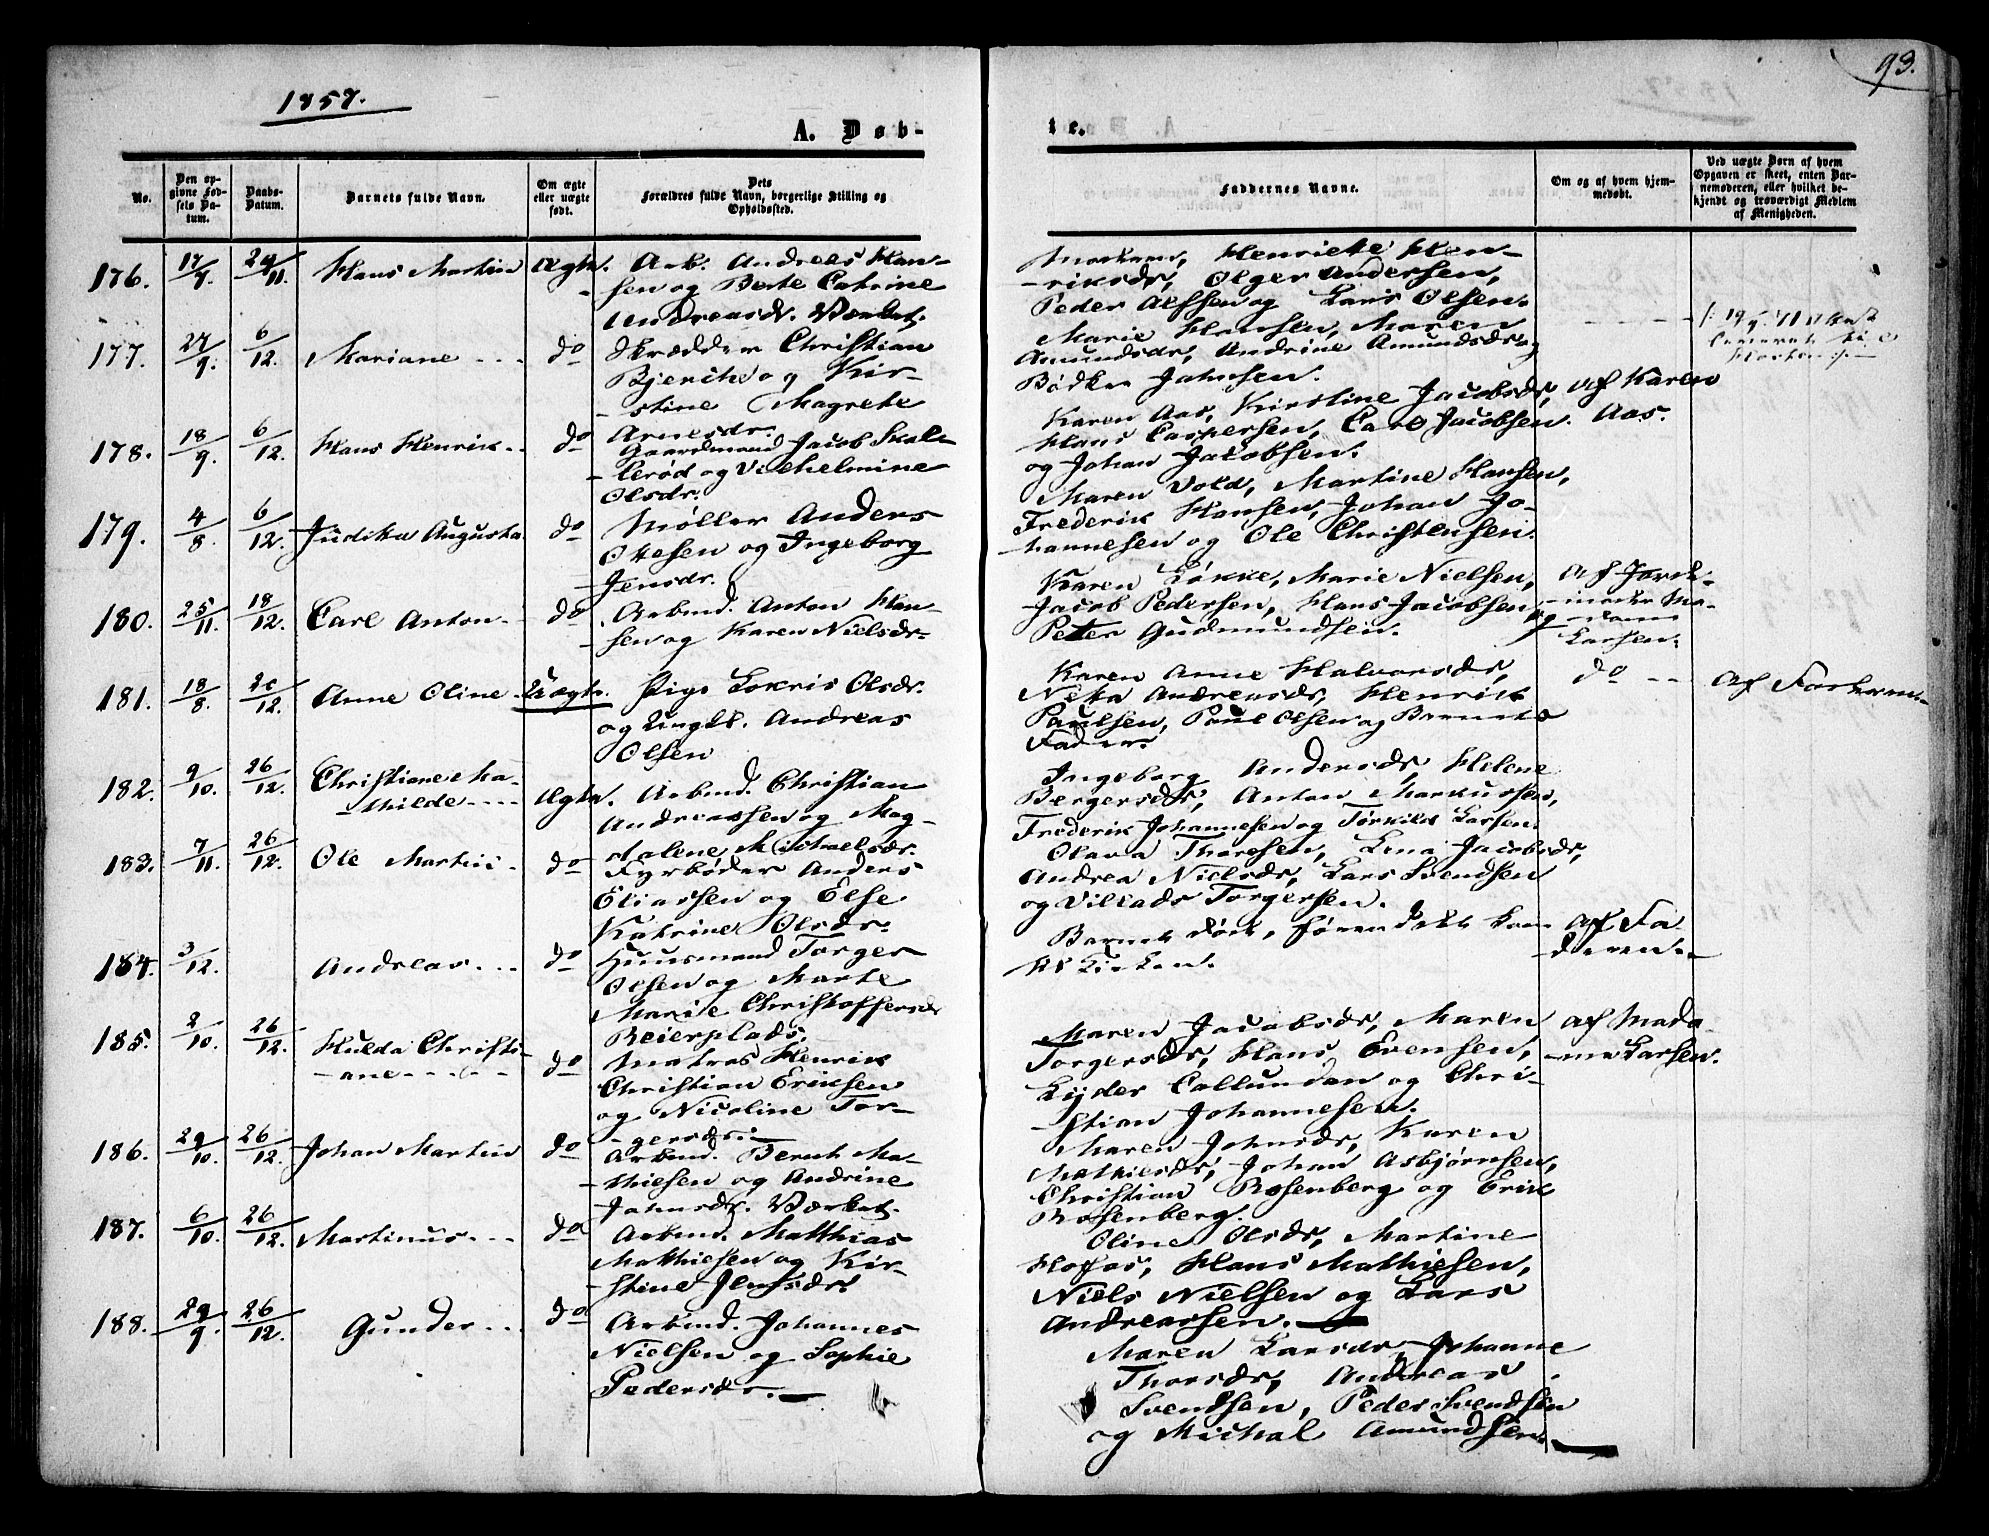 93.
1857.
A. Døb-
te.
No.
Den op-
givne Fød-
sels Da-
tum.
Daabs-
Datum.
Barnets fulde Navn.
Om ægte
eller uægte
født.
Dets
Forældres fulde Navn, borgerlige Stilling og
Opholdssted.
Faddernes Navne.
Om og af hvem hjem-
medøbt.
Ved uægte Børn af hvem
Opgaven er skeet, enten Bar-
nemoderen, eller hvilket be-
kjendt og troværdigt Medlem
af Menigheden.
176. 17/9. 29/11. Hans Martin Ægte.
Arb. Andreas Han-
sen og Berte Catrine
Andreasdr. Værket.
Moderen, Henriette Hen-
riksdr, Olger Andersen,
Peder Alfsen og Lars Olsen.
177. 27/9. 6/12. Mariane do
Skrædder Christian
Bjerche og Kir-
stine Magrete
Arnesdr.
Marie Hansen, Maren
Amundsdr, Andrine Amundsdr og
Bødker Johnsen.
178. 18/9. 6/12. Hans Henrik do
Gaardmand Jacob Skal-
lerød og Vilhelmine
Olsdr.
Karen Aas, Kirstine Jacobsdr,
Hans Caspersen, Carl Jacobsen
og Johan Jacobsen.
af Karen
Aas.
179. 4/8. 6/12. Judika Augusta do
Møller Anders
Olesen og Ingeborg
Jensdr.
Maren Vold, Martine Hansen,
Frederik Hansen, Johan Jo-
hannesen og Ole Christensen.
180. 25/11. 18/12. Carl Anton do
Arbmd. Anton Han-
sen og Karen Nielsdr
Karen Løkke, Marie Nielsen,
Jacob Pedersen, Hans Jacobsen og
Peter Gudmundsen.
af Jord-
moder Ma-
dam
Larsen.
181. 18/8. 20/12. Anne Oline Uægte.
Pige Lokris Olsdr.
og Ungk. Andreas
Olsen
Karen Anne Halvorsdr,
Neka Andreasdr, Henrik
Paulsen, Paul Olsen og Barnets
Fader.
do
af Faderen
182. 9/10. 26/12. Christiane Ma-
thilde Ægte.
Arbmd. Christian
Andreassen og Mag-
dalene Michaelsdr.
Ingeborg Andersdr, Helene
Bergersdr, Anton Markussen,
Frederik Johannesen og Torkild Larsen.
183. 7/11. 26/12. Ole Martin do
Fyrbøder Anders
Eliassen og Else
Katrine Olsdr.
Olava Thoresen, Lena Jacobsdr,
Andrea Nielsdr, Lars Svendsen
og Villads Torgersen.
184. 3/12. Andreas do
Huusmand Torger
Olsen og Marte
Marie Christoffersdr
Beierplads.
Barnet døde, førend det kom
til Kirken.
af Fa-
deren.
185. 2/10. 26/12. Hulda Christi-
ane do
Matros Henrik
Christian Eriksen
og Nicoline Tor-
gersdr.
Maren Jacobsdr, Maren
Torgersdr, Hans Evensen,
Lyder Callundan og Chri-
stian Johannesen.
af Mada-
me Larsen.
186. 29/10. 26/12. Johan Martin do
Arbmd. Bernt Ma-
thiesen og Andrine
Johnsdr. Værket.
Maren Johnsdr, Karen
Mathiesdr, Johan Asbjørnsen,
Christian Rosenberg og Erik
Rosenberg.
187. 6/10. 26/12. Martinus do
Arbmd. Matthias
Mathiesen og Kir-
stine Jensdr.
Oline Olsdr, Martine
Hans Mathiesen,
Niels Nielsen og Lars
Andreassen.
188. 29/9. 26/12. Gunder do
Arbmd. Johannes
Nielsen og Sophie
Pedersdr.
Maren Larsdr, Johanne
Thorsdr, Andreas
Svendsen, Peder Svendsen
og Michal Amundsen.